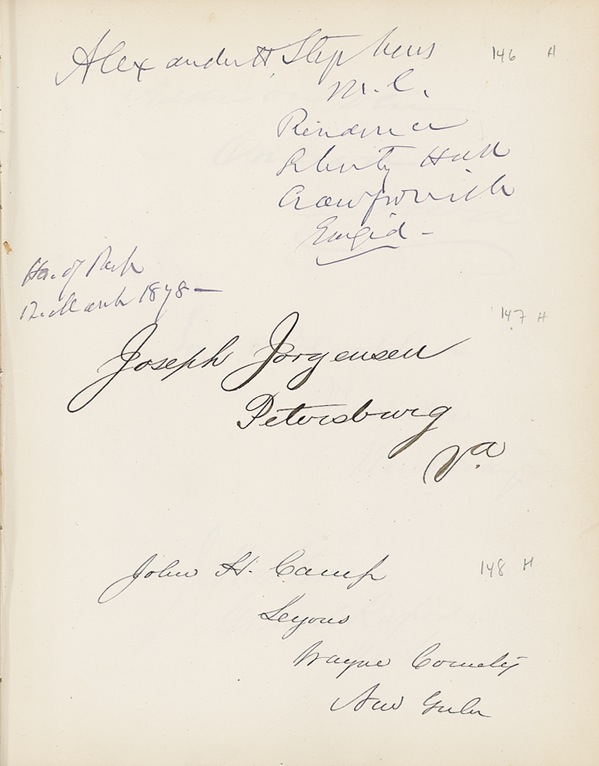 Alexander H Stephens 146 H
M.C.
Residence
Liberty Hall
Crawfordville
Georgia -
Ho. of Rep
12 March 1878 -
147 H
Joseph Jorgensen
Petersburg
Va.
John H. Camp 148 H
Lyons
Wayne County
New York